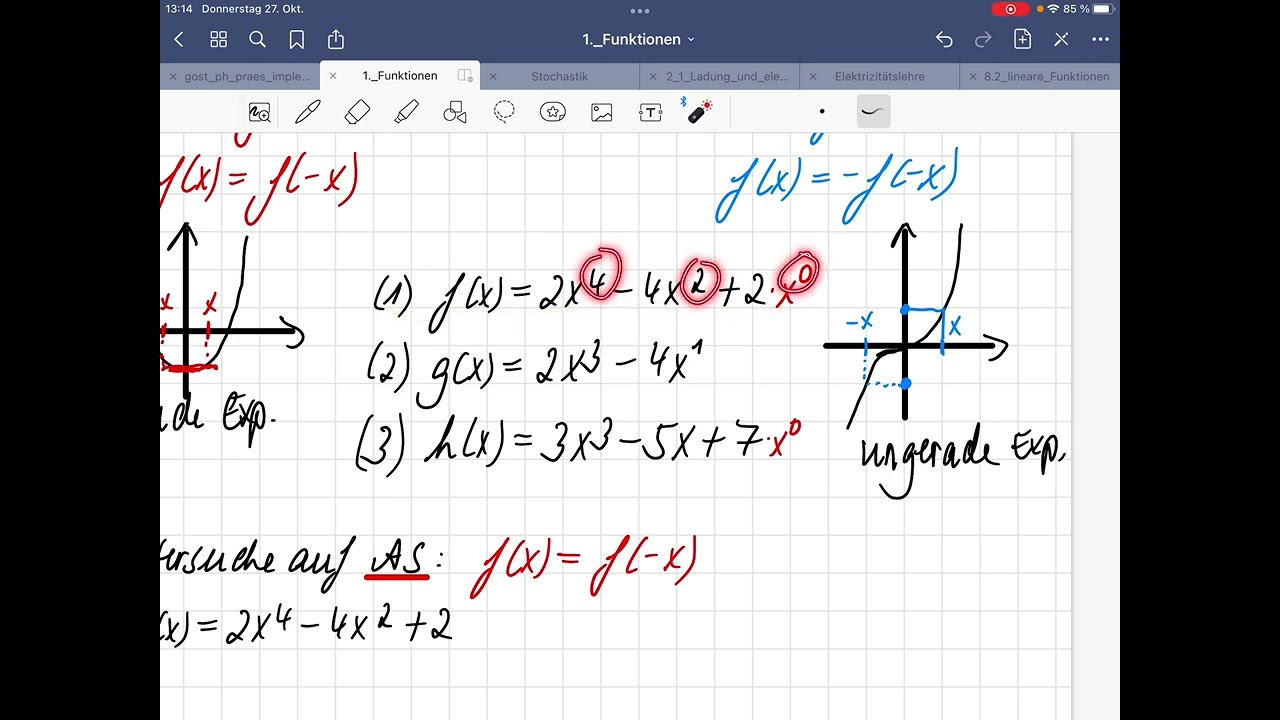 13:14 Donnerstag 27. Okt.
85 %
1._Funktionen
gost_ph_praes_imple...
1._Funktionen
Stochastik
2_1_Ladung_und_ele...
Elektrizitätslehre
8.2_lineare_Funktionen
f(x) = f(-x)
f(x) = -f(-x)
x x
(1) f(x) = 2x⁴ - 4x² + 2·x⁰
-x x
(2) g(x) = 2x³ - 4x¹
Exp.
(3) h(x) = 3x³ - 5x + 7·x⁰
ungerade Exp.
auf AS: f(x) = f(-x)
(x) = 2x⁴ - 4x² + 2